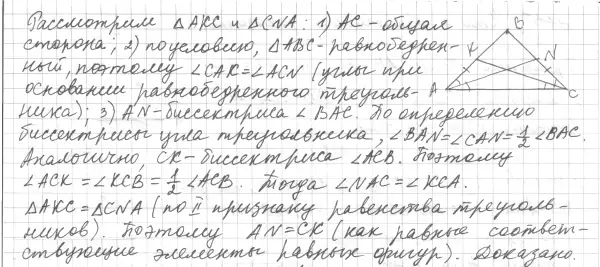 Рассмотрим △AKC и △CNA: 1) AC - общая
сторона; 2) по условию, △ABC - равнобедрен-
ный, поэтому ∠CAK=∠ACN (углы при
основании равнобедренного треуголь-
ника); 3) AN - биссектриса ∠BAC. По определению
биссектрисы угла треугольника, ∠BAN=∠CAN=1/2 ∠BAC.
Аналогично, CK - биссектриса ∠ACB. Поэтому
∠ACK=∠KCB=1/2 ∠ACB. Тогда ∠NAC=∠KCA.
△AKC=△CNA (по II признаку равенства треуголь-
ников). Поэтому AN=CK (как равные соответ-
ствующие элементы равных фигур). Доказано.
B
K
N
A
C